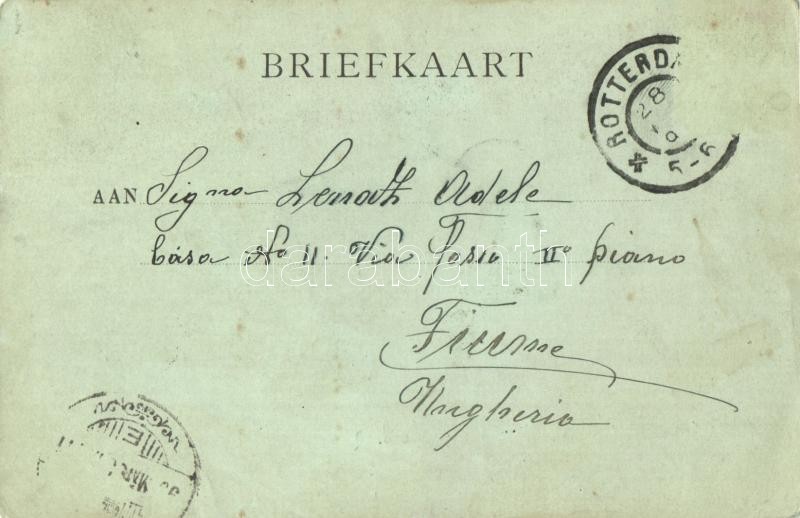 BRIEFKAART
ROTTERDA
28
5-6
AAN Signa Lenath Adele
Cása No 11. Via Fosso IIo piano
darabanth
Fiume
Ungheria
MÁR.